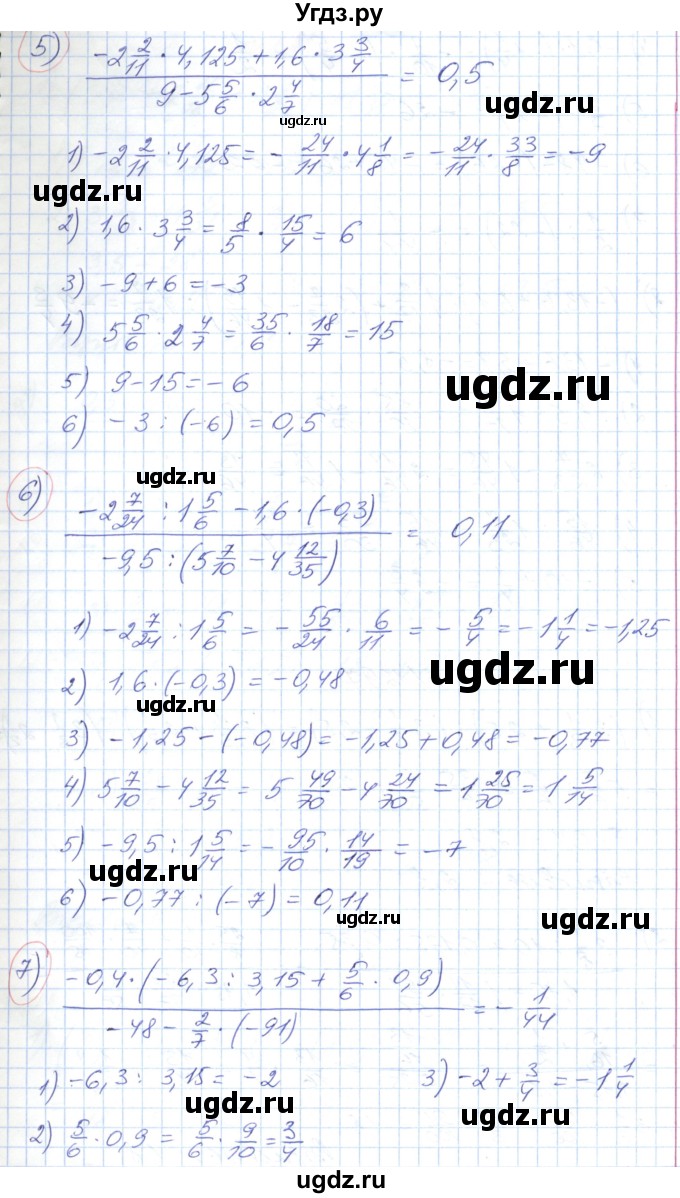 Угдз.ру
5) (-2 2/11 · 4,125 + 1,6 · 3 3/4) / (9 - 5 5/6 · 2 4/7) = 0,5
ugdz.ru
ugdz.ru
1) -2 2/11 · 4,125 = - 24/11 · 4 1/8 = - 24/11 · 33/8 = -9
ugdz.ru
2) 1,6 · 3 3/4 = 8/5 · 15/4 = 6
3) -9 + 6 = -3
ugdz.ru
4) 5 5/6 · 2 4/7 = 35/6 · 18/7 = 15
5) 9 - 15 = -6
ugdz.ru
6) -3 : (-6) = 0,5
ugdz.ru
6) (-2 7/24 : 1 5/6 - 1,6 · (-0,3)) / (-9,5 : (5 7/10 - 4 12/35)) = 0,11
1) -2 7/24 : 1 5/6 = - 55/24 · 6/11 = - 5/4 = -1 1/4 = -1,25
ugdz.ru
2) 1,6 · (-0,3) = -0,48
ugdz.ru
3) -1,25 - (-0,48) = -1,25 + 0,48 = -0,77
4) 5 7/10 - 4 12/35 = 5 49/70 - 4 24/70 = 1 25/70 = 1 5/14
5) -9,5 : 1 5/14 = - 95/10 · 14/19 = -7
ugdz.ru
6) -0,77 : (-7) = 0,11
ugdz.ru
7) (-0,4 · (-6,3 : 3,15 + 5/6 · 0,9)) / (-48 - 2/7 · (-91)) = - 1/44
1) -6,3 : 3,15 = -2
3) -2 + 3/4 = -1 1/4
ugdz.ru
ugdz.ru
2) 5/6 · 0,9 = 5/6 · 9/10 = 3/4